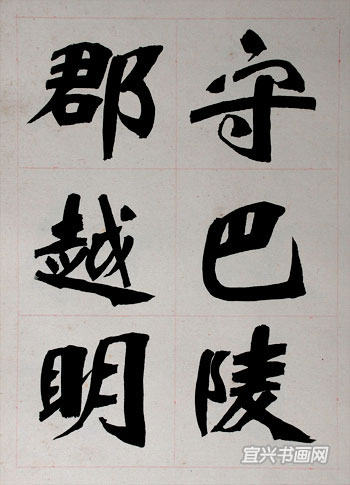 守巴陵
郡越明
宜兴书画网